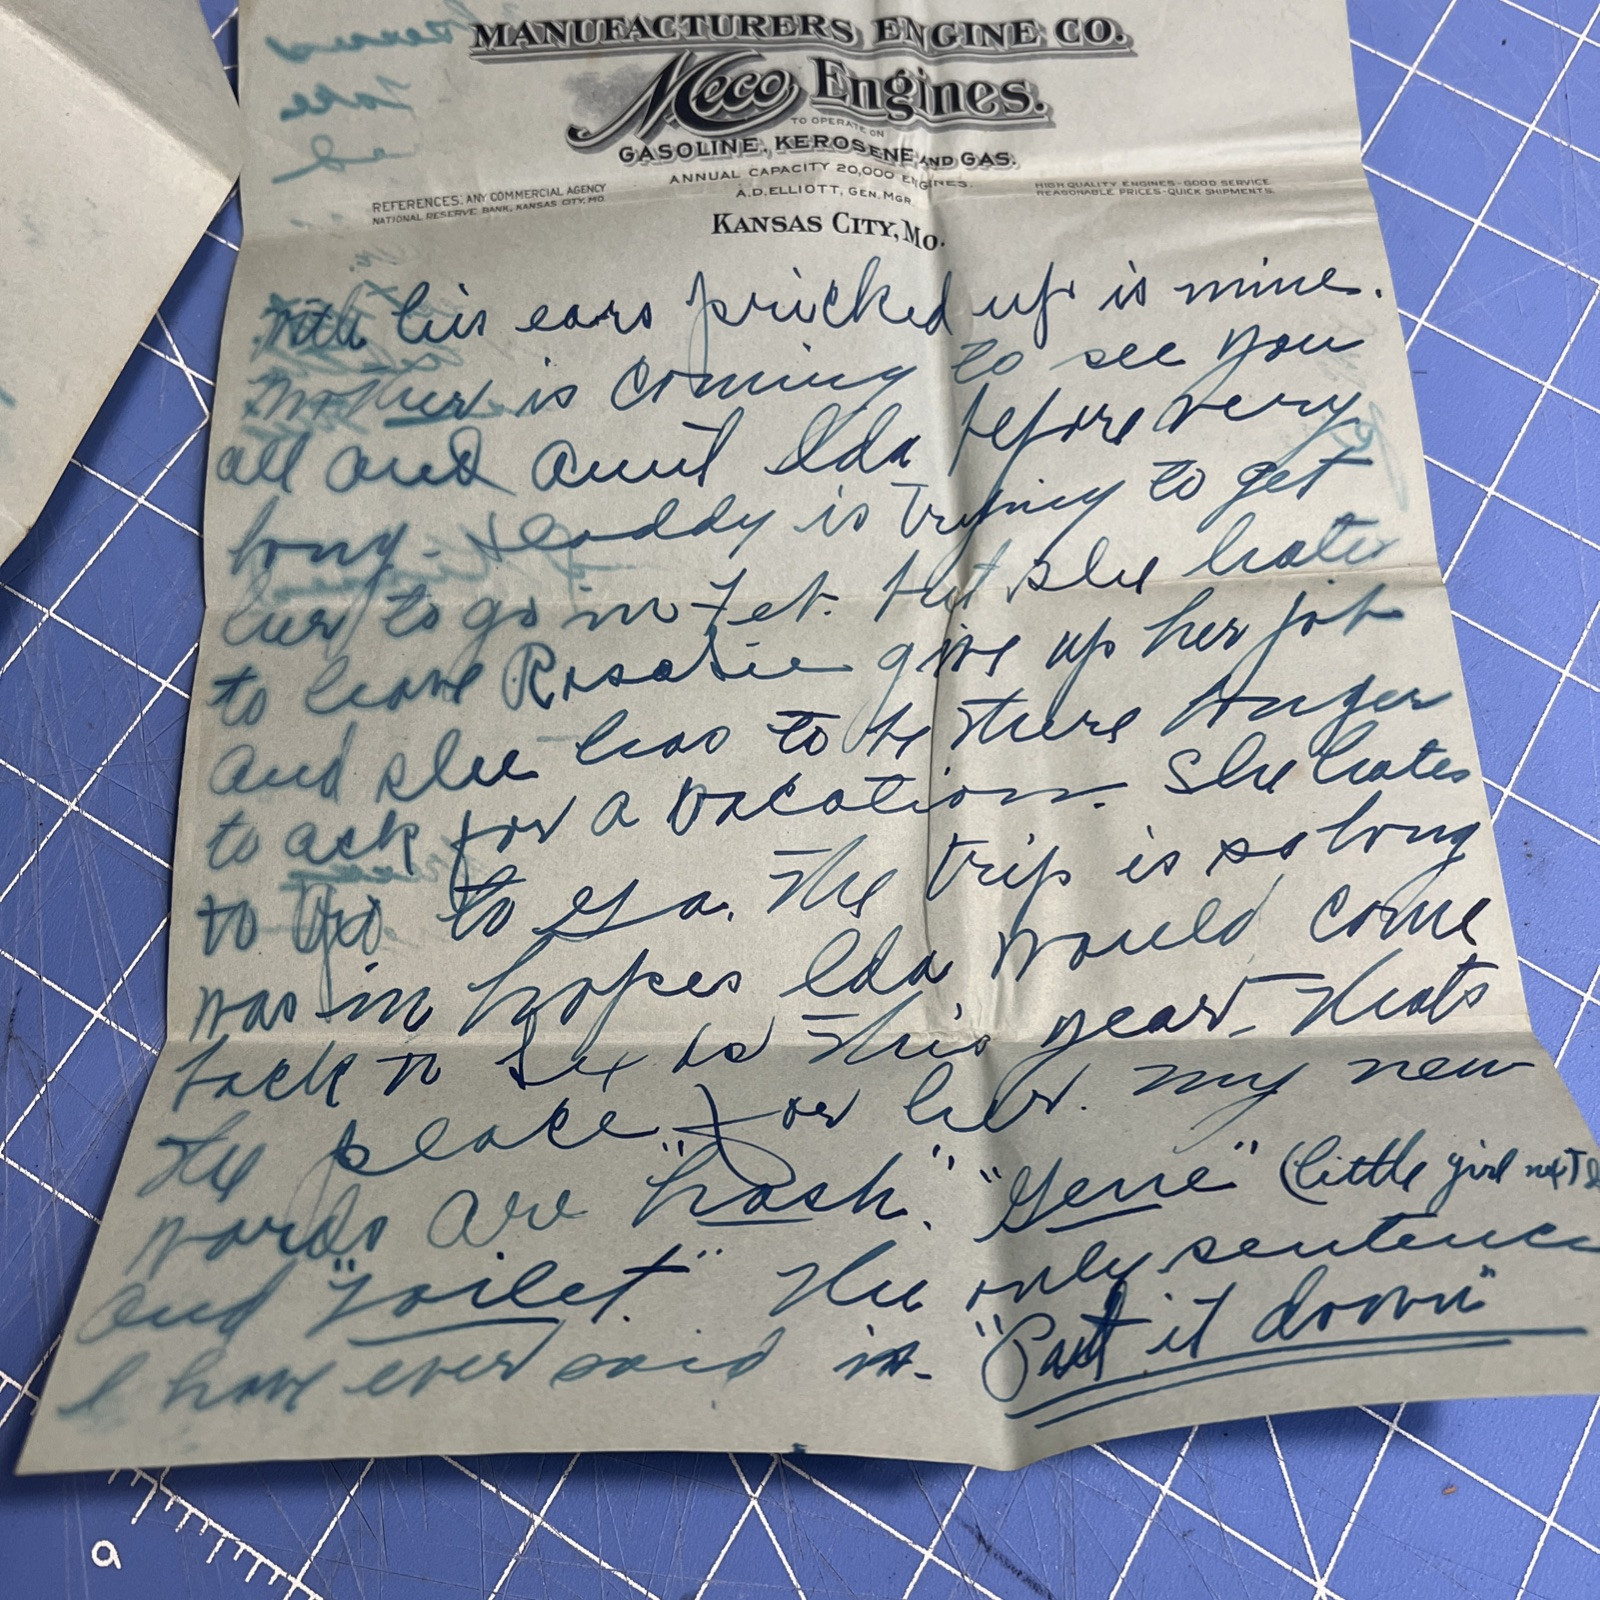 MANUFACTURERS ENGINE CO.
Meco Engines.
TO OPERATE ON
GASOLINE, KEROSENE AND GAS.
ANNUAL CAPACITY 20,000 ENGINES.
REFERENCES: ANY COMMERCIAL AGENCY
NATIONAL RESERVE BANK, KANSAS CITY, MO.
A.D. ELLIOTT, GEN. MGR.
HIGH QUALITY ENGINES-GOOD SERVICE
REASONABLE PRICES-QUICK SHIPMENTS.
KANSAS CITY, MO.
With his ears pricked up is mine.
Mother is coming to see you
all and Aunt Ida before very
long. Daddy is trying to get
her to go in Feb. but she hates
to leave Rosalie give up her job
and she has to be there longer
to ask for a vacation. She hates
to go to Ga. The trip is so long
was in hopes Ida would come
back to this year. Thats
the place for her. My new
words are "hash". "Gene" (little girl next
and "Toilet." The only sentence
I have ever said is "Put it down"
9